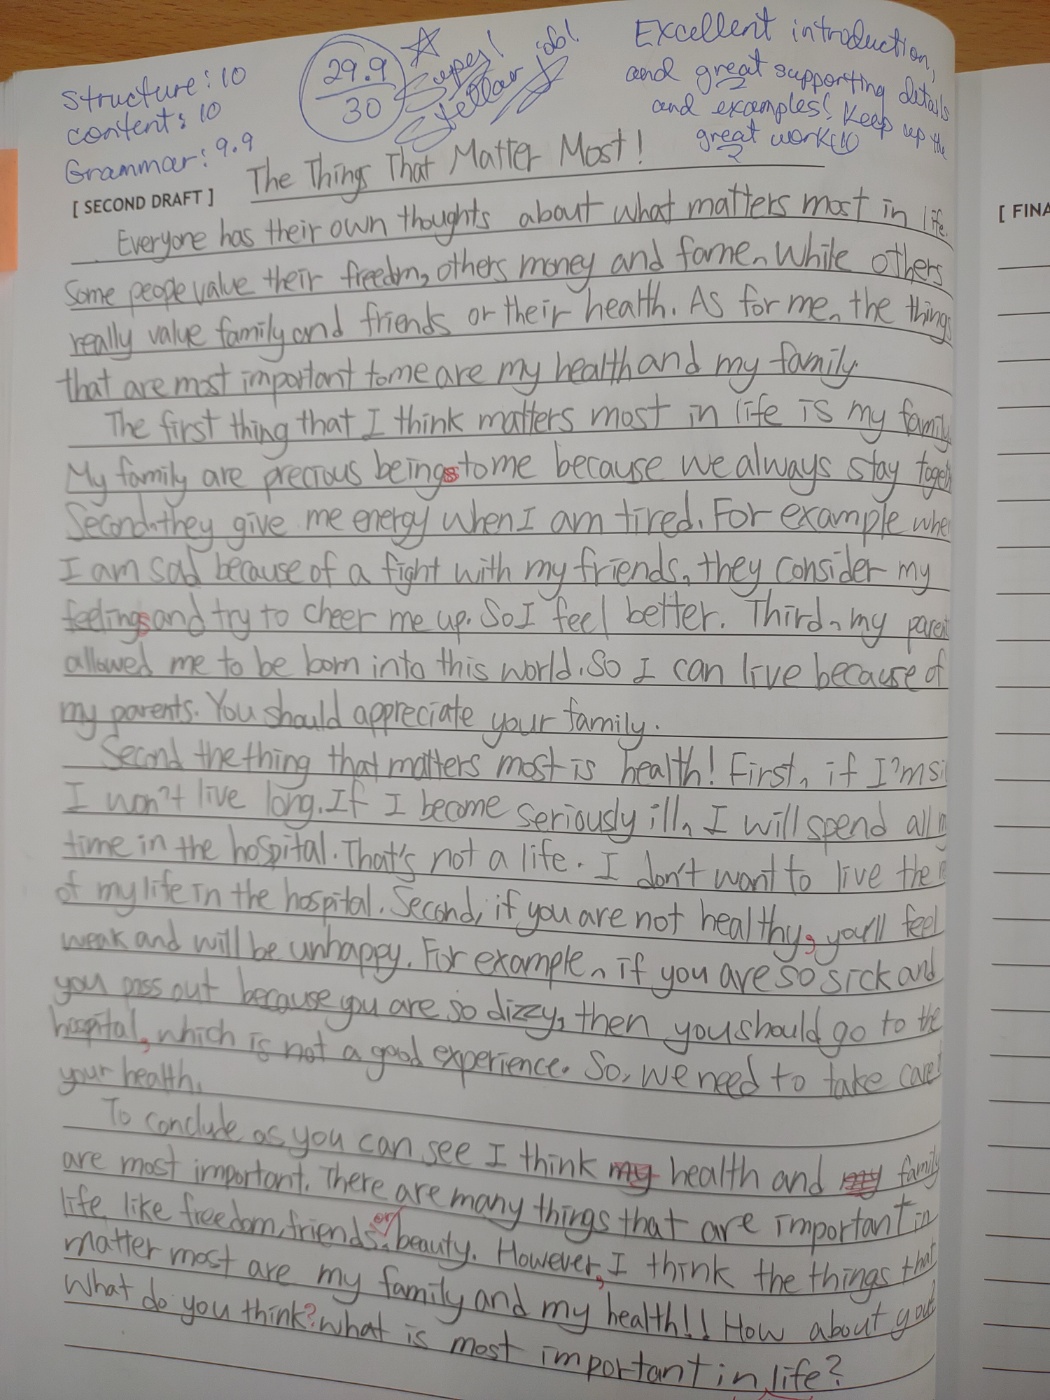 Structure: 10
content: 10
Grammar: 9.9
29.9
30
Super!
Stellar job!
Excellent introduction,
and great supporting details
and examples! Keep up the
great work
The Things That Matter Most!
[ SECOND DRAFT ]
[ FINA
Everyone has their own thoughts about what matters most in life
Some people value their freedm, others money and fame, While others
really value family and friends or their health. As for me, the things
that are most important to me are my health and my family
The first thing that I think matters most in life is my family
My family are precious beings to me because we always stay toget
Second, they give me energy when I am tired. For example whe
I am sad because of a fight with my friends, they consider my
feelings and try to cheer me up. So I feel better. Third, my paren
allowed me to be born into this world. So I can live because of
my parents. You should appreciate your family.
Second the thing that matters most is health! First, if I'm si
I won't live long. If I become seriously ill, I will spend all m
time in the hospital. That's not a life. I don't want to live the
of my life in the hospital. Second, if you are not healthy, you'll feel
weak and will be unhappy. For example, if you are so sick and
you pass out because you are so dizzy, then you should go to the
hospital, which is not a good experience. So, we need to take care
your health.
To conclude as you can see I think my health and my family
are most important. There are many things that are important in
life like freedom, friends, or beauty. However, I think the things that
matter most are my family and my health!! How about you?
What do you think? what is most important in life?